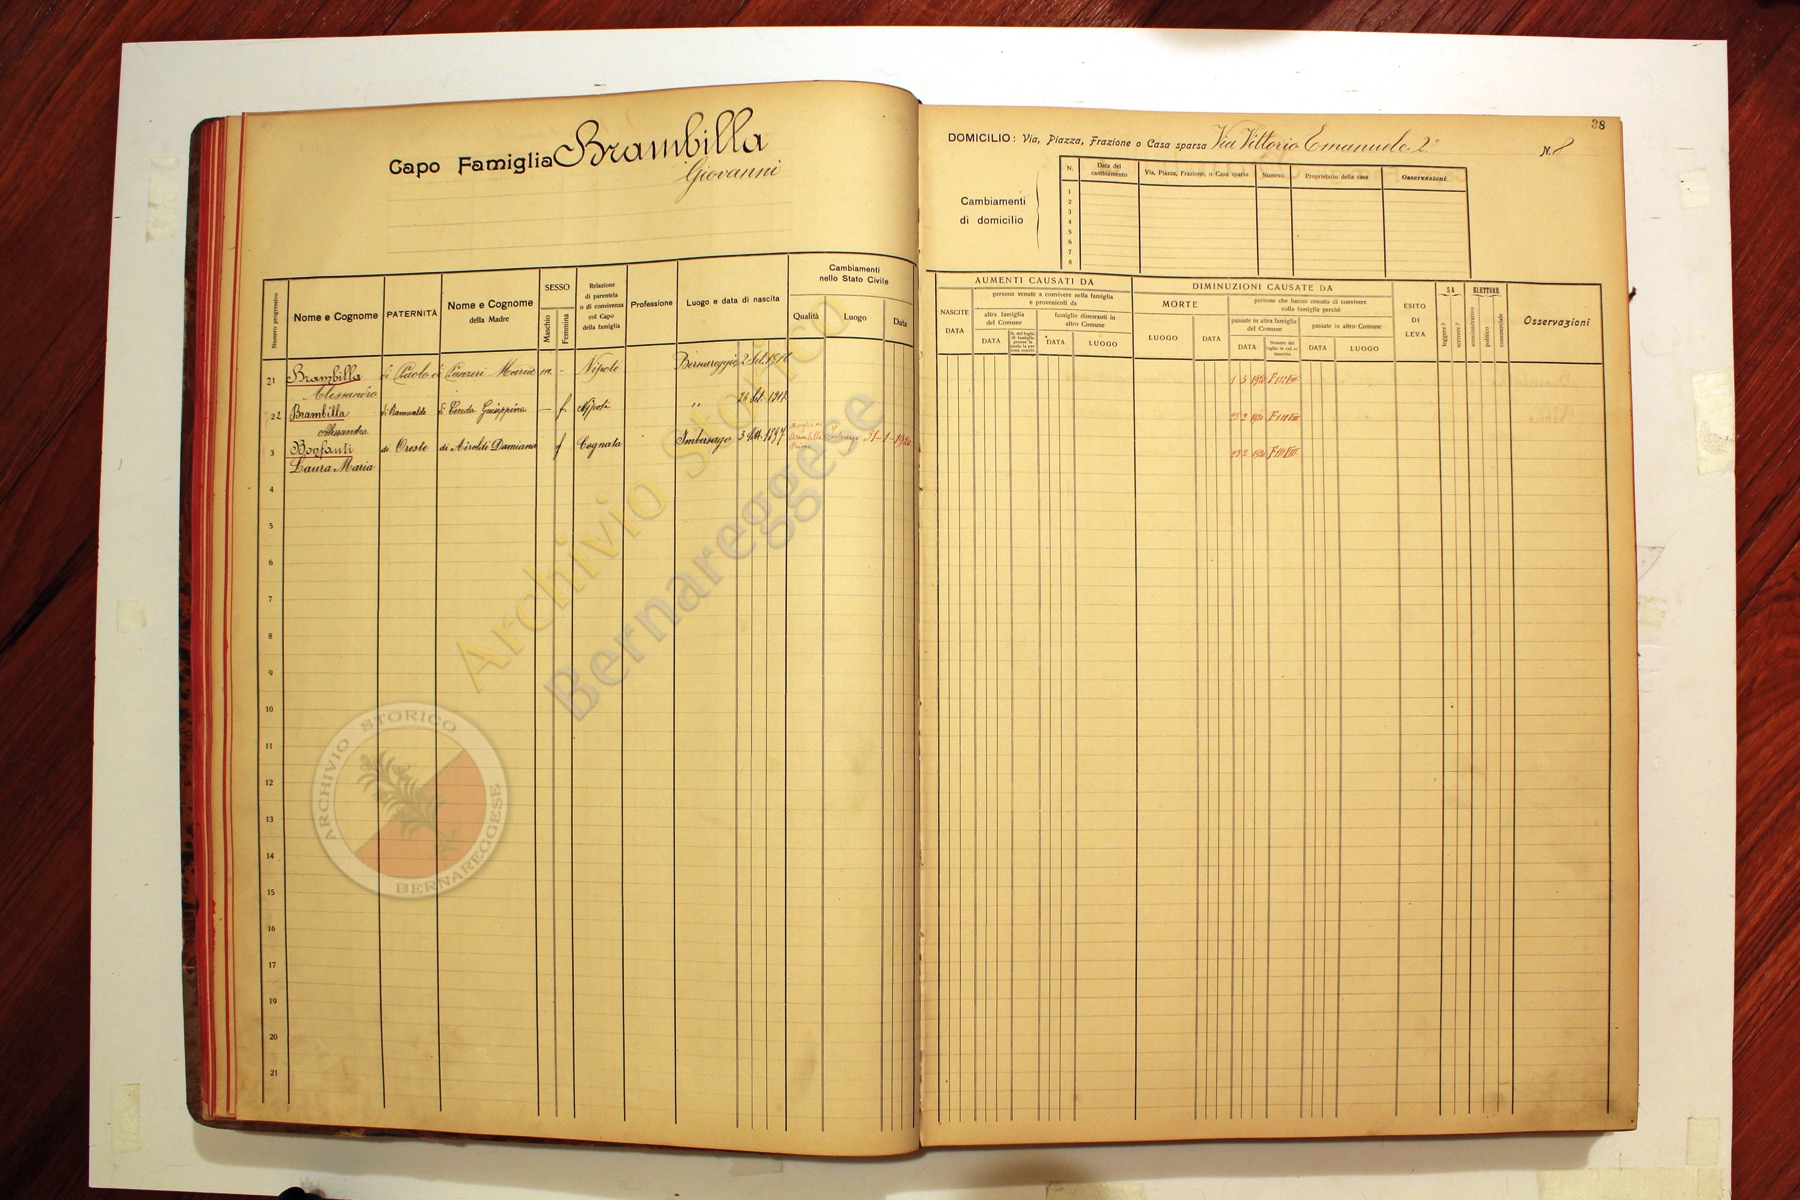 Capo Famiglia Brambilla
Giovanni
38
DOMICILIO: Via, Piazza, Frazione o Casa sparsa Via Vittorio Emanuele 2° N. 8
Cambiamenti
di domicilio
N. Data del cambiamento Via, Piazza, Frazione, o Casa sparsa Numero Proprietario della casa Osservazioni
1
2
3
4
5
6
7
8
Numero progressivo
Nome e Cognome
PATERNITÀ
Nome e Cognome
della Madre
SESSO
Maschio
Femmina
Relazione
di parentela
o di convivenza
col Capo
della famiglia
Professione
Luogo e data di nascita
Cambiamenti
nello Stato Civile
Qualità Luogo Data
AUMENTI CAUSATI DA
NASCITE
DATA
persone venute a convivere nella famiglia
e provenienti da
altra famiglia
del Comune
DATA
famiglie dimoranti in
altro Comune
DATA LUOGO
DIMINUZIONI CAUSATE DA
MORTE
LUOGO DATA
persone che hanno cessato di convivere
colla famiglia perchè
passate in altra famiglia
del Comune
DATA
passate in altro Comune
DATA LUOGO
ESITO
DI
LEVA
SA
leggere?
scrivere?
ELETTORE
amministrativo
politico
commerciale
Osservazioni
21 Brambilla di Paolo di Panzeri Maria m. - Nipote Bernareggio 2 1 3 1920
Alessandro
22 Brambilla di Romualdo di Cereda Giuseppina — f. Nipote " 26 23 2 1920
Alessandra
3 Bonfanti di Oreste di Airoldi Damiana f Cognata Imbersago 3 1897 Brambilla Imbersago 31-1-1920 23 2 1920
Laura Maria
4
5
6
7
8
9
10
11
12
13
14
15
16
17
18
19
20
21
Archivio Storico
Bernareggese
ARCHIVIO STORICO
BERNAREGGESE